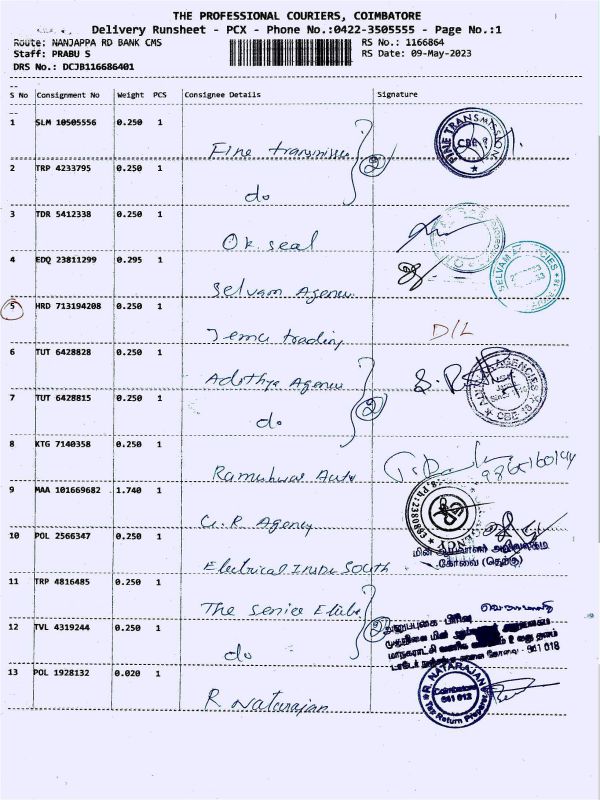 THE PROFESSIONAL COURIERS, COIMBATORE
Delivery Runsheet - PCX - Phone No.:0422-3505555 - Page No.:1
Route: NANJAPPA RD BANK CMS RS No.: 1166864
Staff: PRABU S RS Date: 09-May-2023
DRS No.: DCJB116686401
S No Consignment No Weight PCS Consignee Details Signature
1 SLM 10505556 0.250 1 Fine transmission
FINE TRANSMISSION CBE
2 TRP 4233795 0.250 1 do
2
3 TDR 5412338 0.250 1 Ok seal
4 EDQ 23811299 0.295 1 Selvam Agency
SELVAM AGENCIES
5 HRD 713194208 0.250 1 Jemu trading D/L
6 TUT 6428828 0.250 1 Adithya Agency
AGENCIES CBE
7 TUT 6428815 0.250 1 do
2
8 KTG 7140358 0.250 1 Rameshwar Auto
9 MAA 101669682 1.740 1 G.R Agency
10 POL 2566347 0.250 1 Electrical Inspe South
மின் ஆய்வாளர் அலுவலகம்
கோவை (தெற்கு)
11 TRP 4816485 0.250 1 The Senior
12 TVL 4319244 0.250 1 do
2
641 018
13 POL 1928132 0.020 1 R Natarajan
R. NATARAJAN
Coimbatore
641 012
Tax Return Preparer